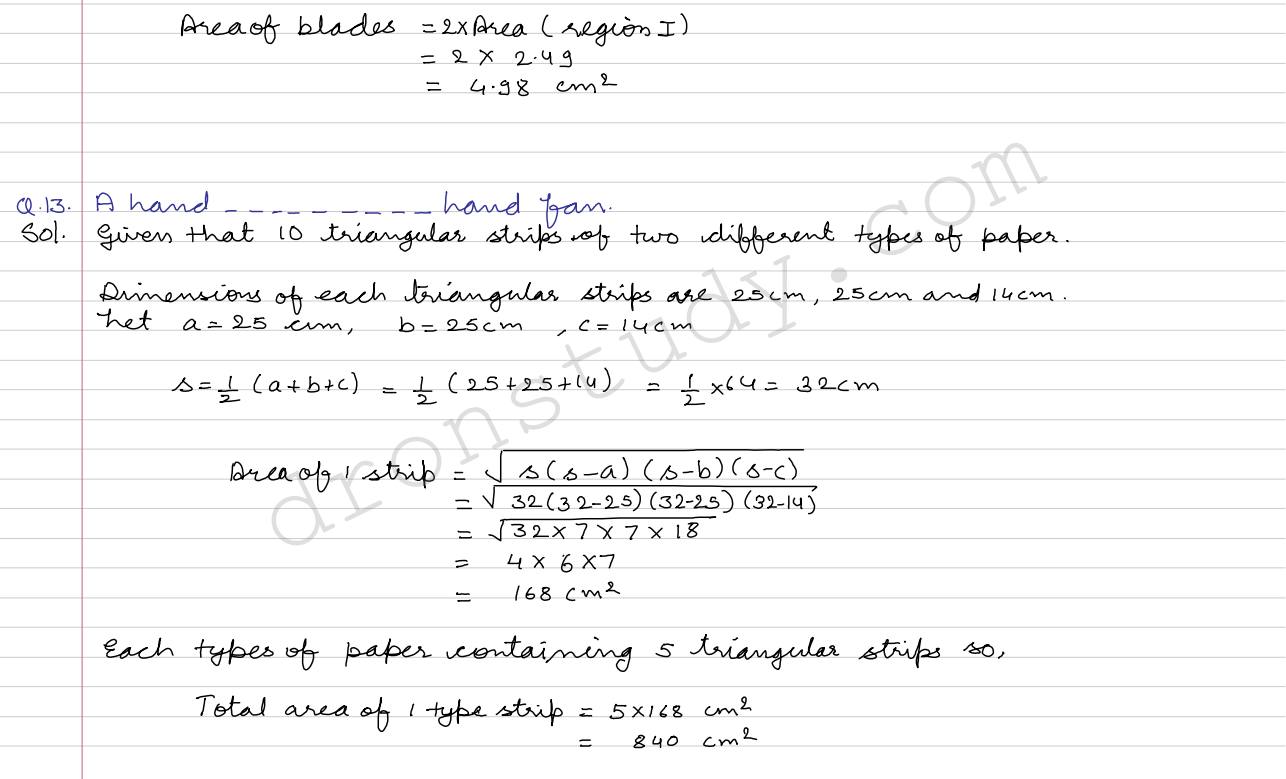 Area of blades = 2×Area (region I)
= 2 × 2.49
= 4.98 cm²
Q.13. A hand _ _ _ _ _ _ _ _ _ hand fan.
Sol. Given that 10 triangular strips of two different types of paper.
Dimensions of each triangular strips are 25cm, 25cm and 14cm.
Let a = 25 cm, b = 25cm, c = 14cm
s = 1/2 (a+b+c) = 1/2 (25+25+14) = 1/2 ×64 = 32cm
Area of 1 strip = √s(s-a)(s-b)(s-c)
= √32(32-25)(32-25)(32-14)
= √32×7×7×18
= 4×6×7
= 168 cm²
Each types of paper containing 5 triangular strips so,
Total area of 1 type strip = 5×168 cm²
= 840 cm²
dronstudy.com